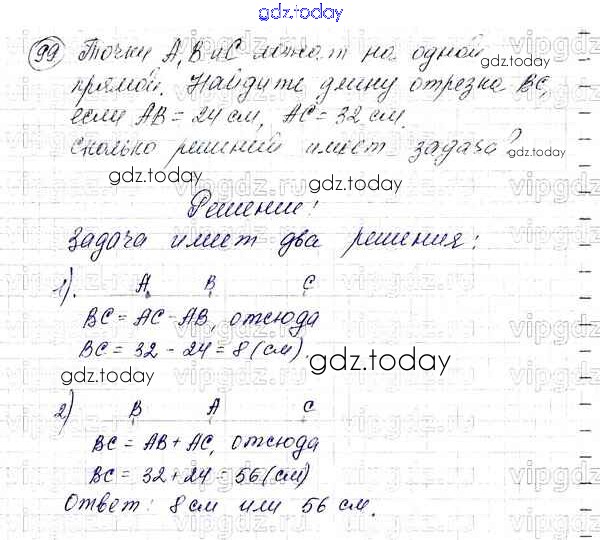 gdz.today
99 Точки А, В и С лежат на одной
gdz.today
прямой. Найдите длину отрезка ВС,
если АВ = 24 см, АС = 32 см.
Сколько решений имеет задача?
gdz.today
gdz.today
Решение:
Задача имеет два решения:
1). А В С
ВС = АС - АВ, отсюда
ВС = 32 - 24 = 8 (см).
gdz.today
gdz.today
2) В А С
ВС = АВ + АС, отсюда
ВС = 32 + 24 = 56 (см)
Ответ: 8 см или 56 см.